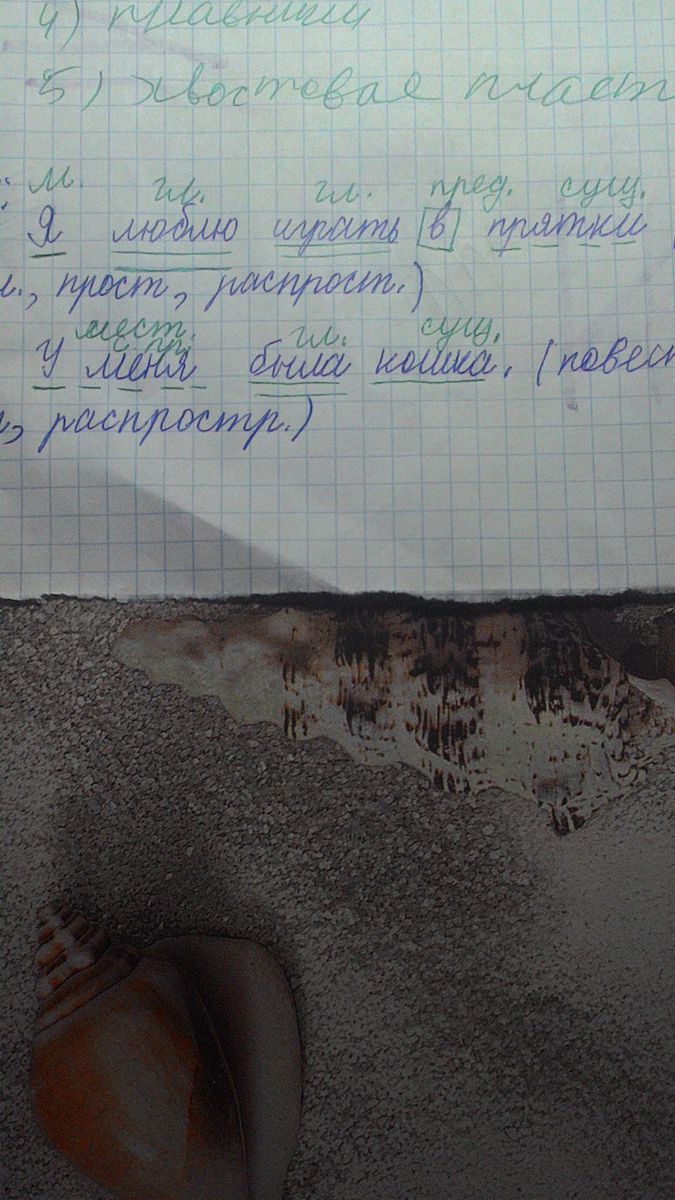 4) плавники
5) хвостовая пласт
м. гл. гл. пред. сущ.
Я люблю играть в прятки (
., прост, распрост.)
мест. гл. сущ.
пр.
У меня была кошка. (повест
, распростр.)